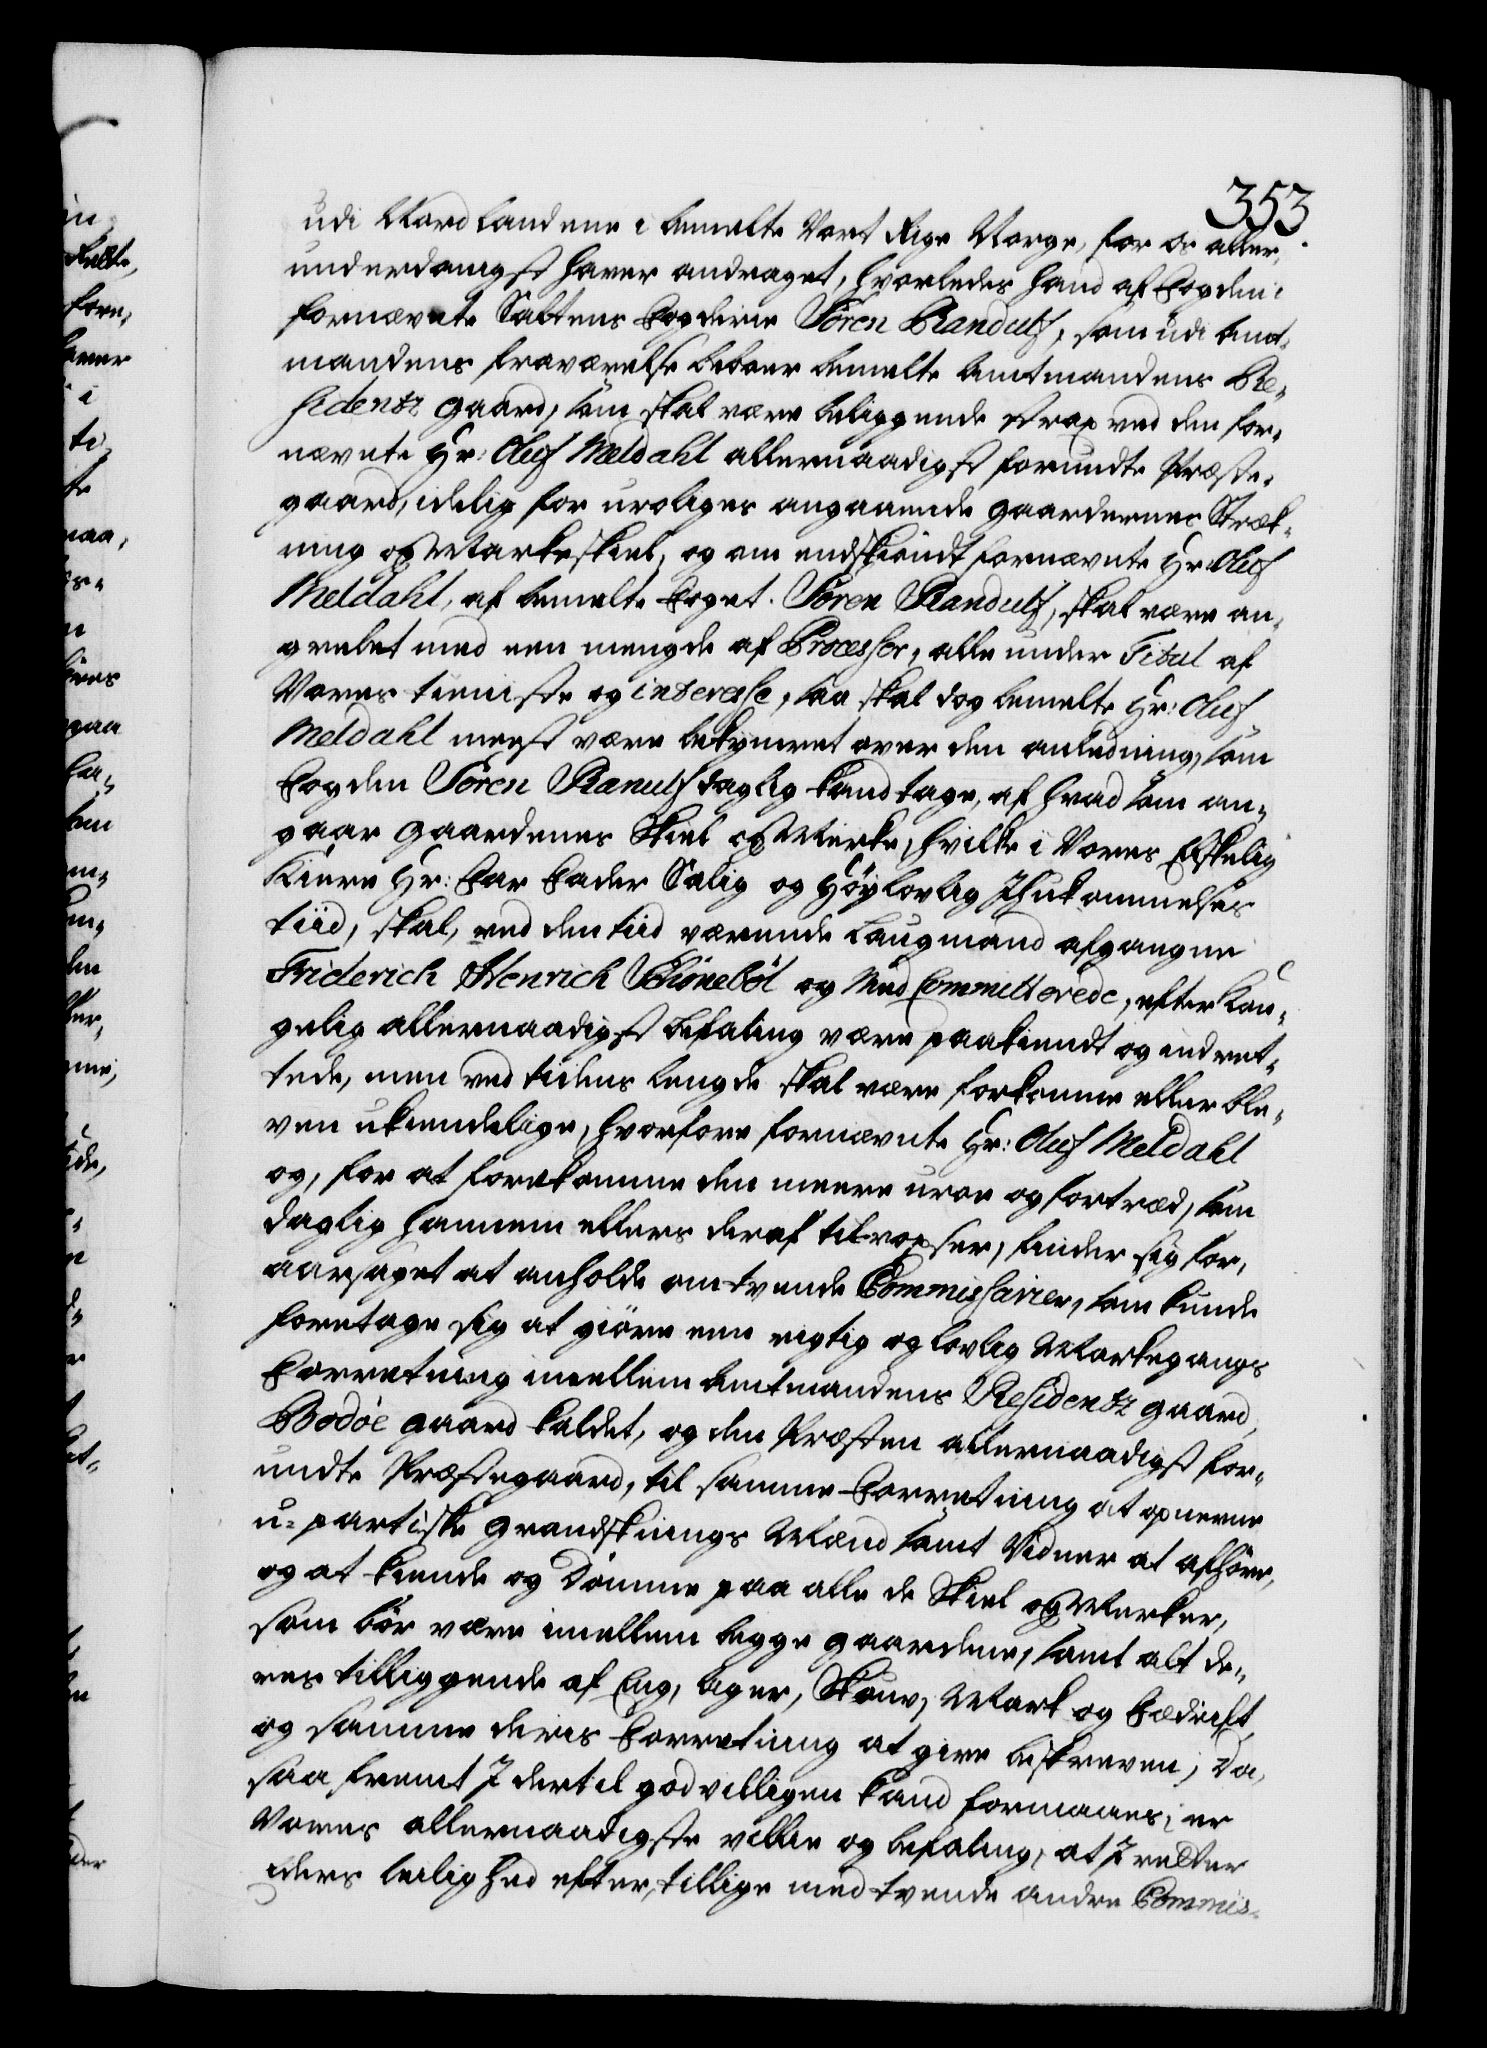 353.
udi Nordlandene i bemelte Vort Rige Norge, for os aller,,
underdanigst haver andraget, hvorledes hand af Fogden i
fornævnte Saltens Fogderie Sören Randulf, som udi Amt,,
mandens fraværelse beboer bemelte Amtmandens Re,,
sidentz gaard, som skal være beliggende strax ved den for,,
nævnte Hr: Oluf Meldahl allernaadigst forundte Præste,,
gaard, idelig for uroliges angaaende gaardernes Stræk,,
ning og Markeskiel, og om endskiöndt fornævnte Hr: Oluf
Meldahl, af bemelte Foget Sören Randulf, skal være an,,
grebet med een mengde af Processer, alle under Titul af
Vores tieniste og interesse, saa skal dog bemelte Hr: Oluf
Meldahl meest være bekymret over den anledning, som
Fogden Sören Ranulf daglig kand tage, af hvad som an,,
gaar gaardenes Skiel og Merke, hvilke i Vores Elskelig
Kiere Hr: Far Fader Salig og Höylovlig Ihukommelses
tiid, skal, ved den tiid værende Laugmand afgangne
Friderich Henrich Schönebôl og Med Committerede, efter Kon,,
gelig allernaadigst befaling være paakiendt og indret,,
tede, men ved tidens lengde skal være forkomne eller ble,,
ven ukiendelige, hvorfore fornævnte Hr: Oluf Meldahl
og, for at forekomme den meere uroe og fortræd, som
daglig hannem ellers deraf tilvoxser, finder sig for,,
aarsaget at anholde om tvende Commissarier, som kunde
foretage sig at giöre een rigtig og lovlig Markegangs
Forretning imellem Amtmandens Residentz gaard,
Bodöe gaard kaldet, og den Præsten allernaadigst for,,
undte Præstegaard, til samme Forretning at opnevne
u-partiske Grandsknings Mænd samt Vidner at afhöre,
og at kiende og Dömme paa alle de Skiel og Merker,
som bör være imellem begge gaardene, samt alt de,,
res tilliggende af Eng, Ager, Skouv, Mark og Fædrift,
og samme deris Forretning at give beskreven; Da,
saa fremt I dertil godvilligen kand formaaes, er
Vores allernaadigste villie og befaling, at I retter
Eders leilighed efter, tillige med tvende andre Commis-